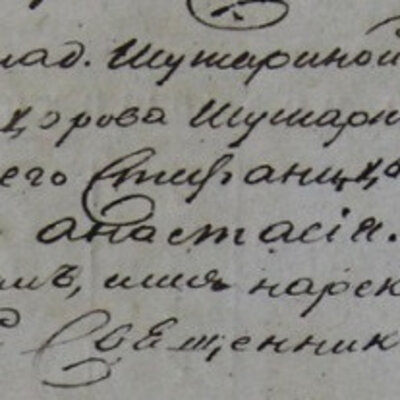 лад. Шушариной
дорова Шушари
его
анастасія.
имъ, имя нарек
Священник